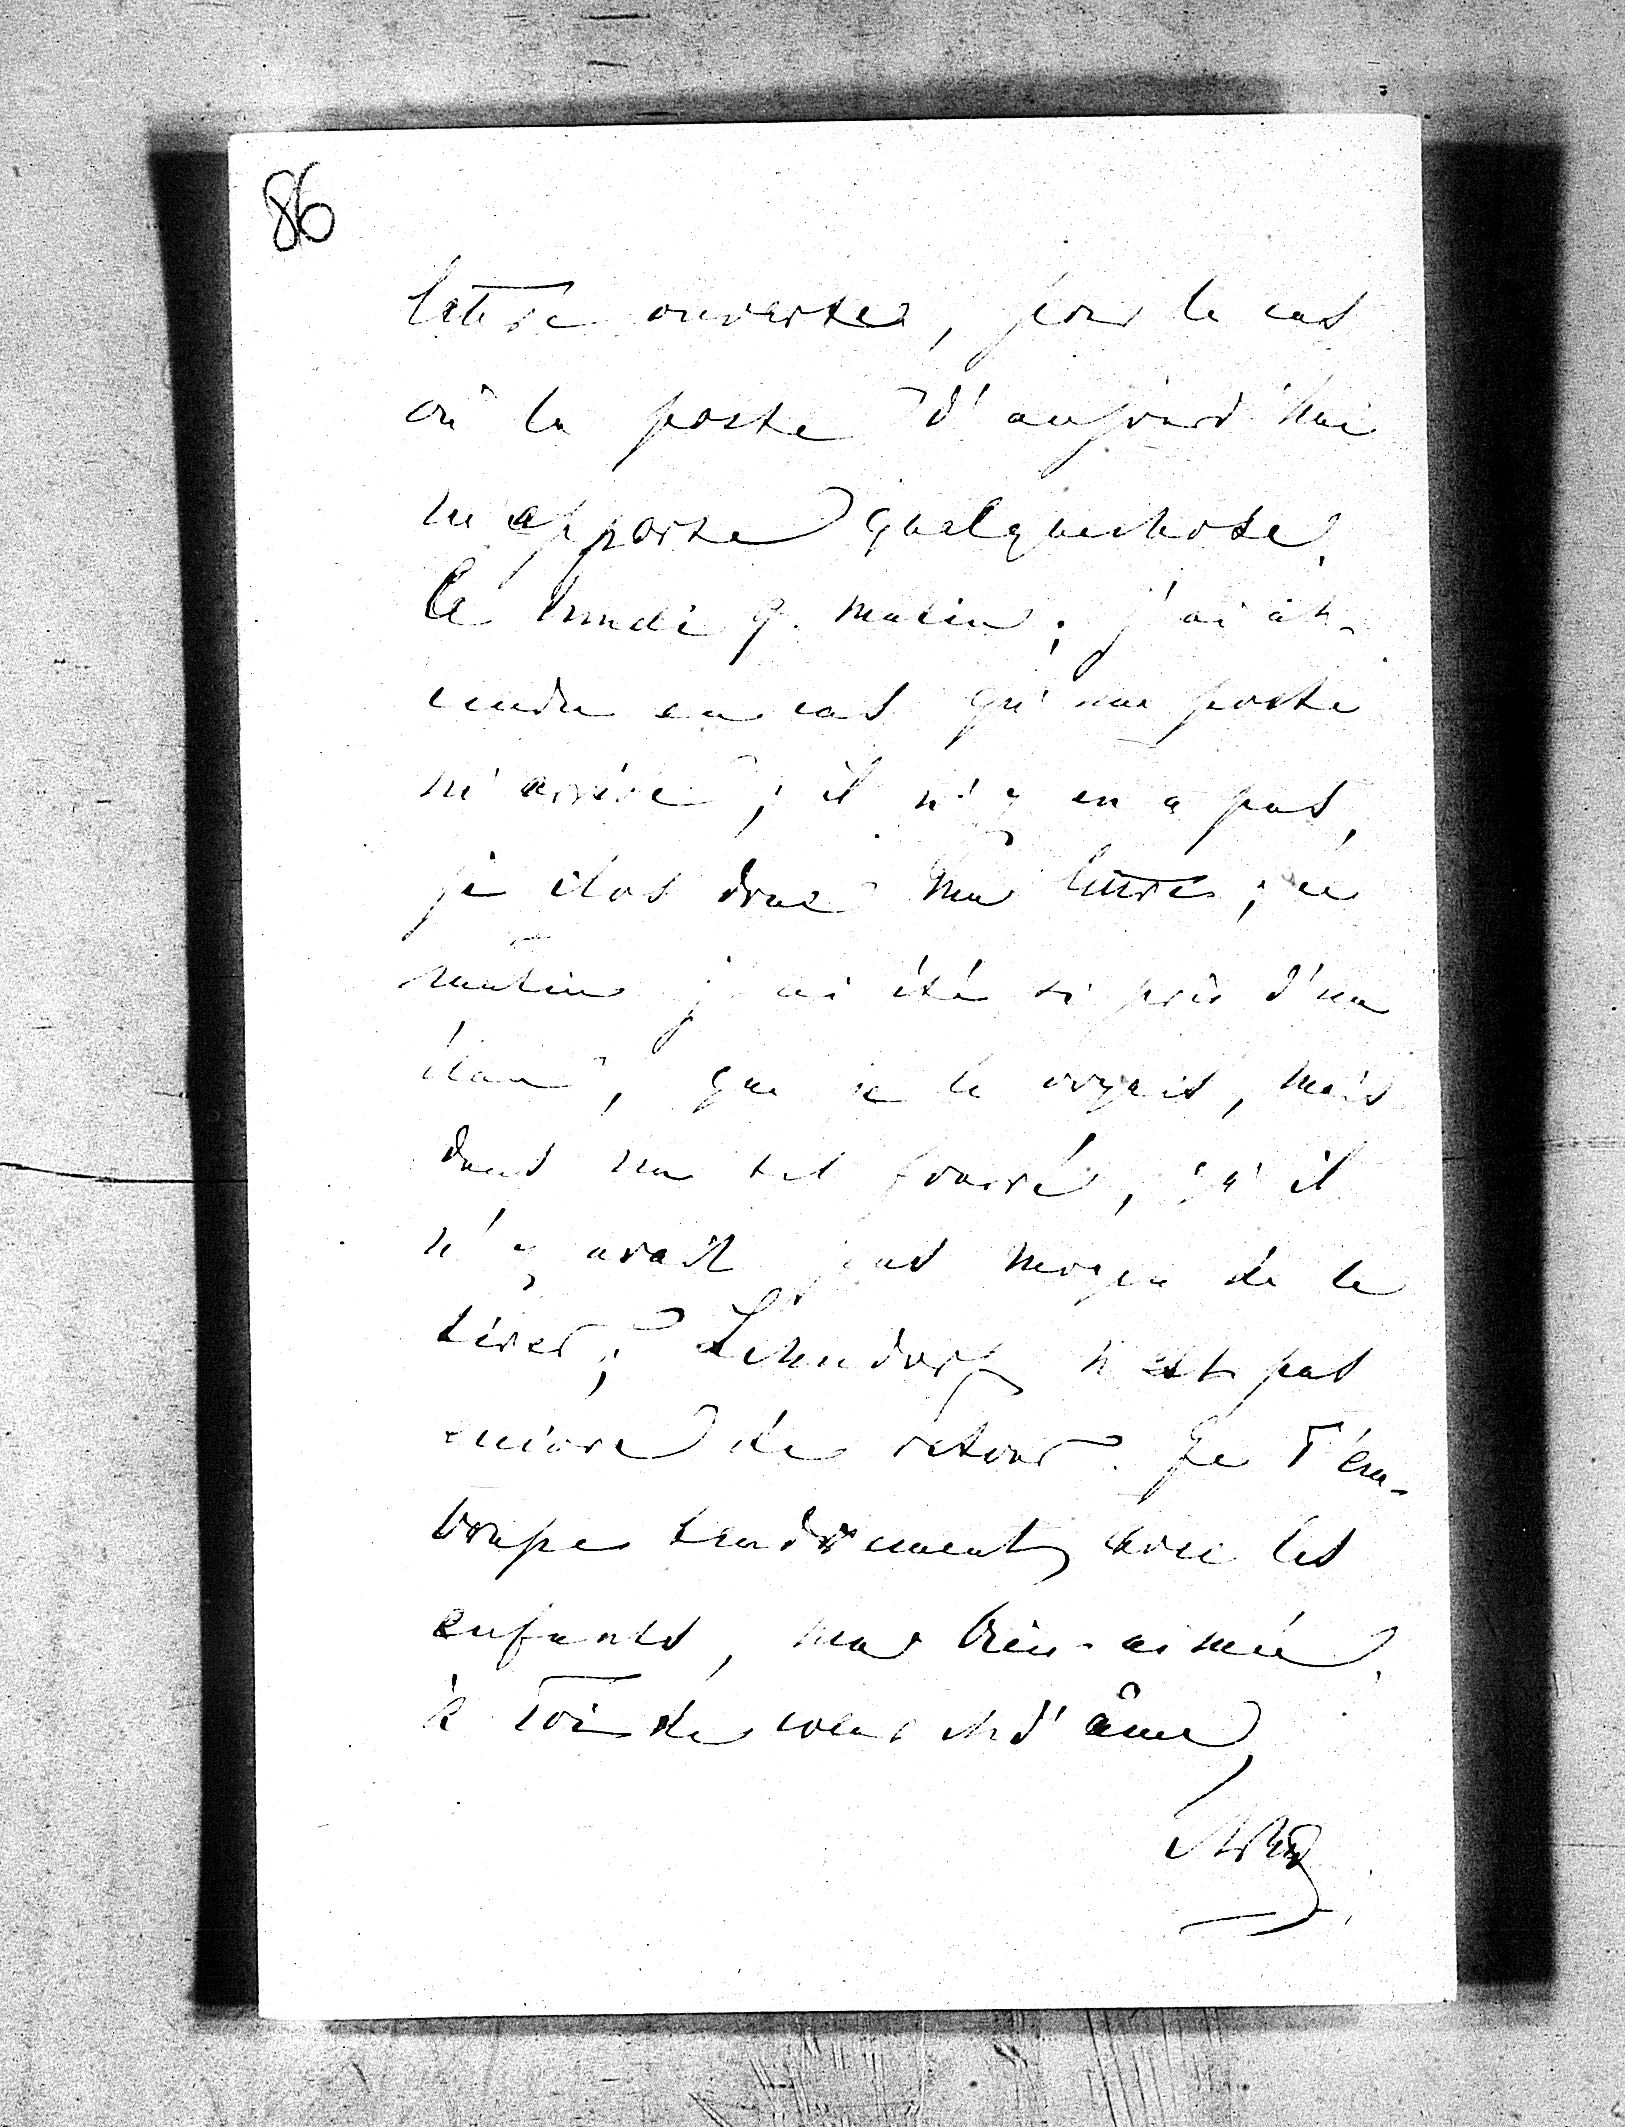 86
lettre ouverte, pour le cas
où la poste d'aujourd'hui
m'apporte quelquechose.
Ce lundi 9. matin; j'ai at-
tendu en cas qu'une poste
m'arrive; il n'y en a pas,
je clos donc ma lettre; ce
matin j'ai été si près d'un
élan, que je le voyais, mais
dans un tel fourré, qu'il
n'y avait pas moyen de le
tirer; Lehndorff n'est pas
encore de retour. Je T'em-
brasse tendrement avec les
enfants, ma bien-aimée.
à Toi de coeur et d'âme